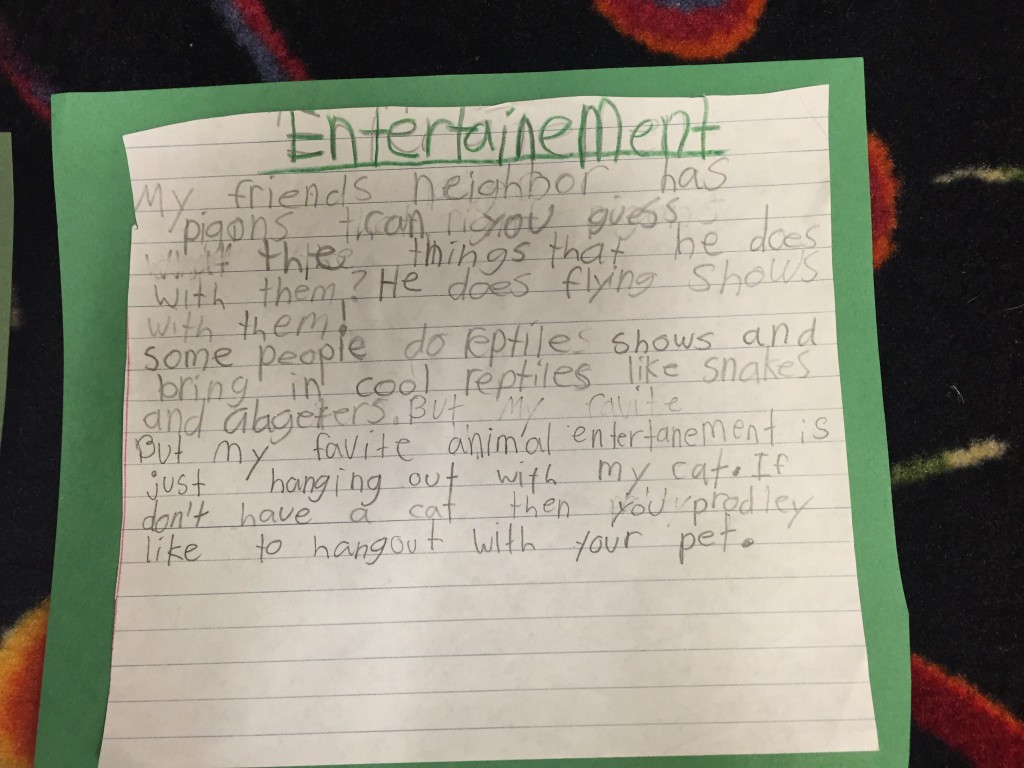 Entertainement
My friends neighbor has
pigons can you guess
thee things that he does
with them? He does flying Shows
with them!
some people do reptiles shows and
bring in cool reptiles like snakes
and abgeters. But My favite
But my favite animal entertanement is
just hanging out with my cat. If
don't have a cat then you prodley
like to hangout with your pet.